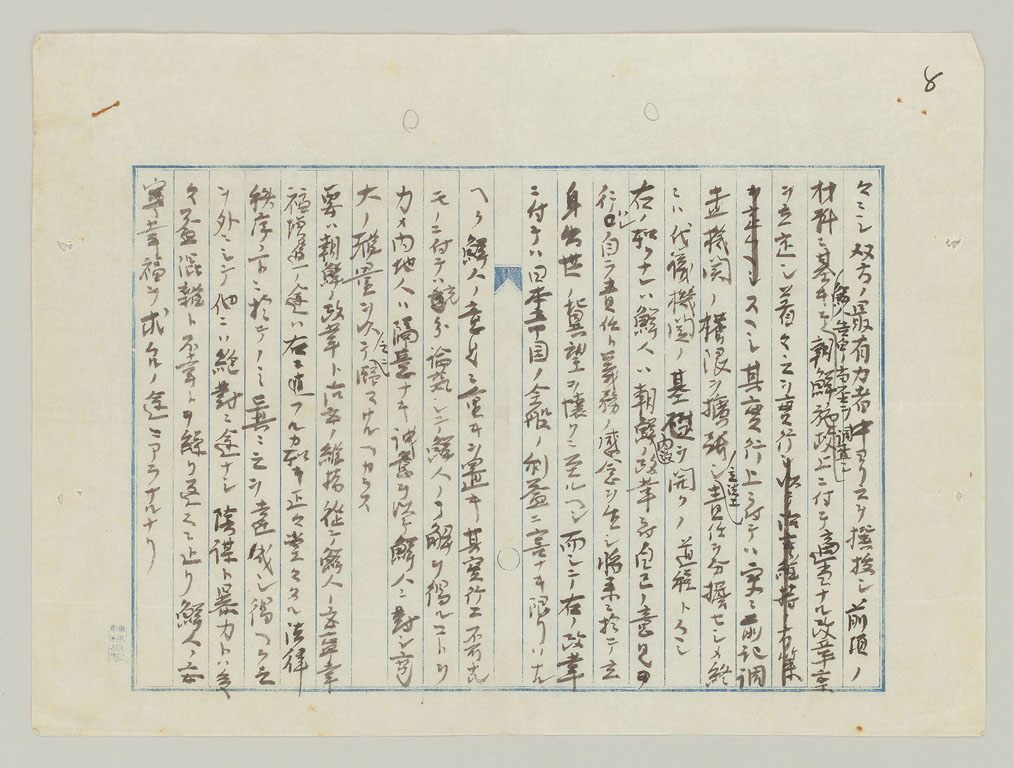 8
々ミシ双方ノ最有力者中ヨリスリ撰抜シ前項ノ
材料ニ基キテ朝鮮施政上ニ付テ適当ナル改革案
ヲ立定シ着々之ヲ実行シ
スヘシ其実行上ニ付テハ更ニ前記調
査機関ノ権限ヲ擴張シ責任ヲ分擔セシメ終
ニハ代議機関ノ基礎ヲ開クノ道程トスヘシ
右ノ如クナレハ鮮人ハ朝鮮ノ改革ニ付自己ノ意見
行レ自ラ責任ト義務ノ感念ヲ生シ将来ニ於テ立
身出世ノ冀望ヲ懐クニ至ルヘシ而シテ右ノ改革
ニ付テハ日本帝国ノ全般ノ利益ニ害ナキ限リハナル
ヘク鮮人ノ意見ニ重キヲ置キ其実行上不可ナル
モノニ付テハ充分論議シテ鮮人ノ了解ヲ得ルコトヲ
力メ内地人ハ隔意ナキ誠意ヲ以テ鮮人ニ対シ寛
大ノ雅量ヲ以テ之ニ臨マサルヘカラス
要ハ朝鮮ノ改革ト治安ノ維持従テ鮮人ノ安寧幸
福増進ノ途ハ右ニ述フル如キ正々堂々タル法律
秩序ノ下ニ於テノミ真ニ之ヲ達成シ得ヘク之
ヲ外ニシテ他ニハ絶対ニ途ナシ陰謀ト暴力トハ
々益混雑ト不幸トヲ繰リ返スニ止リ鮮人ノ安
寧幸福ヲ求ムルノ途ニアラサルナリ